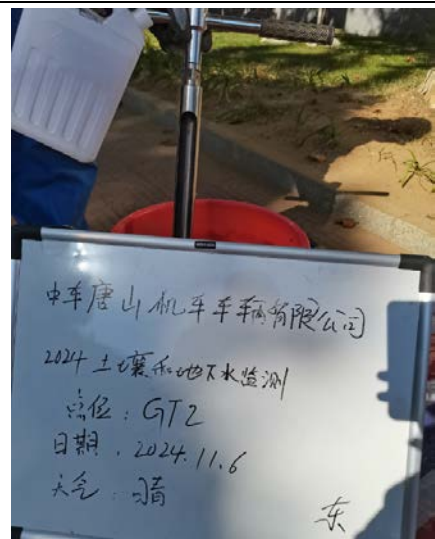 中车唐山机车车辆有限公司
2024土壤和地下水监测
点位：GT2
日期：2024.11.6
天气：晴
东